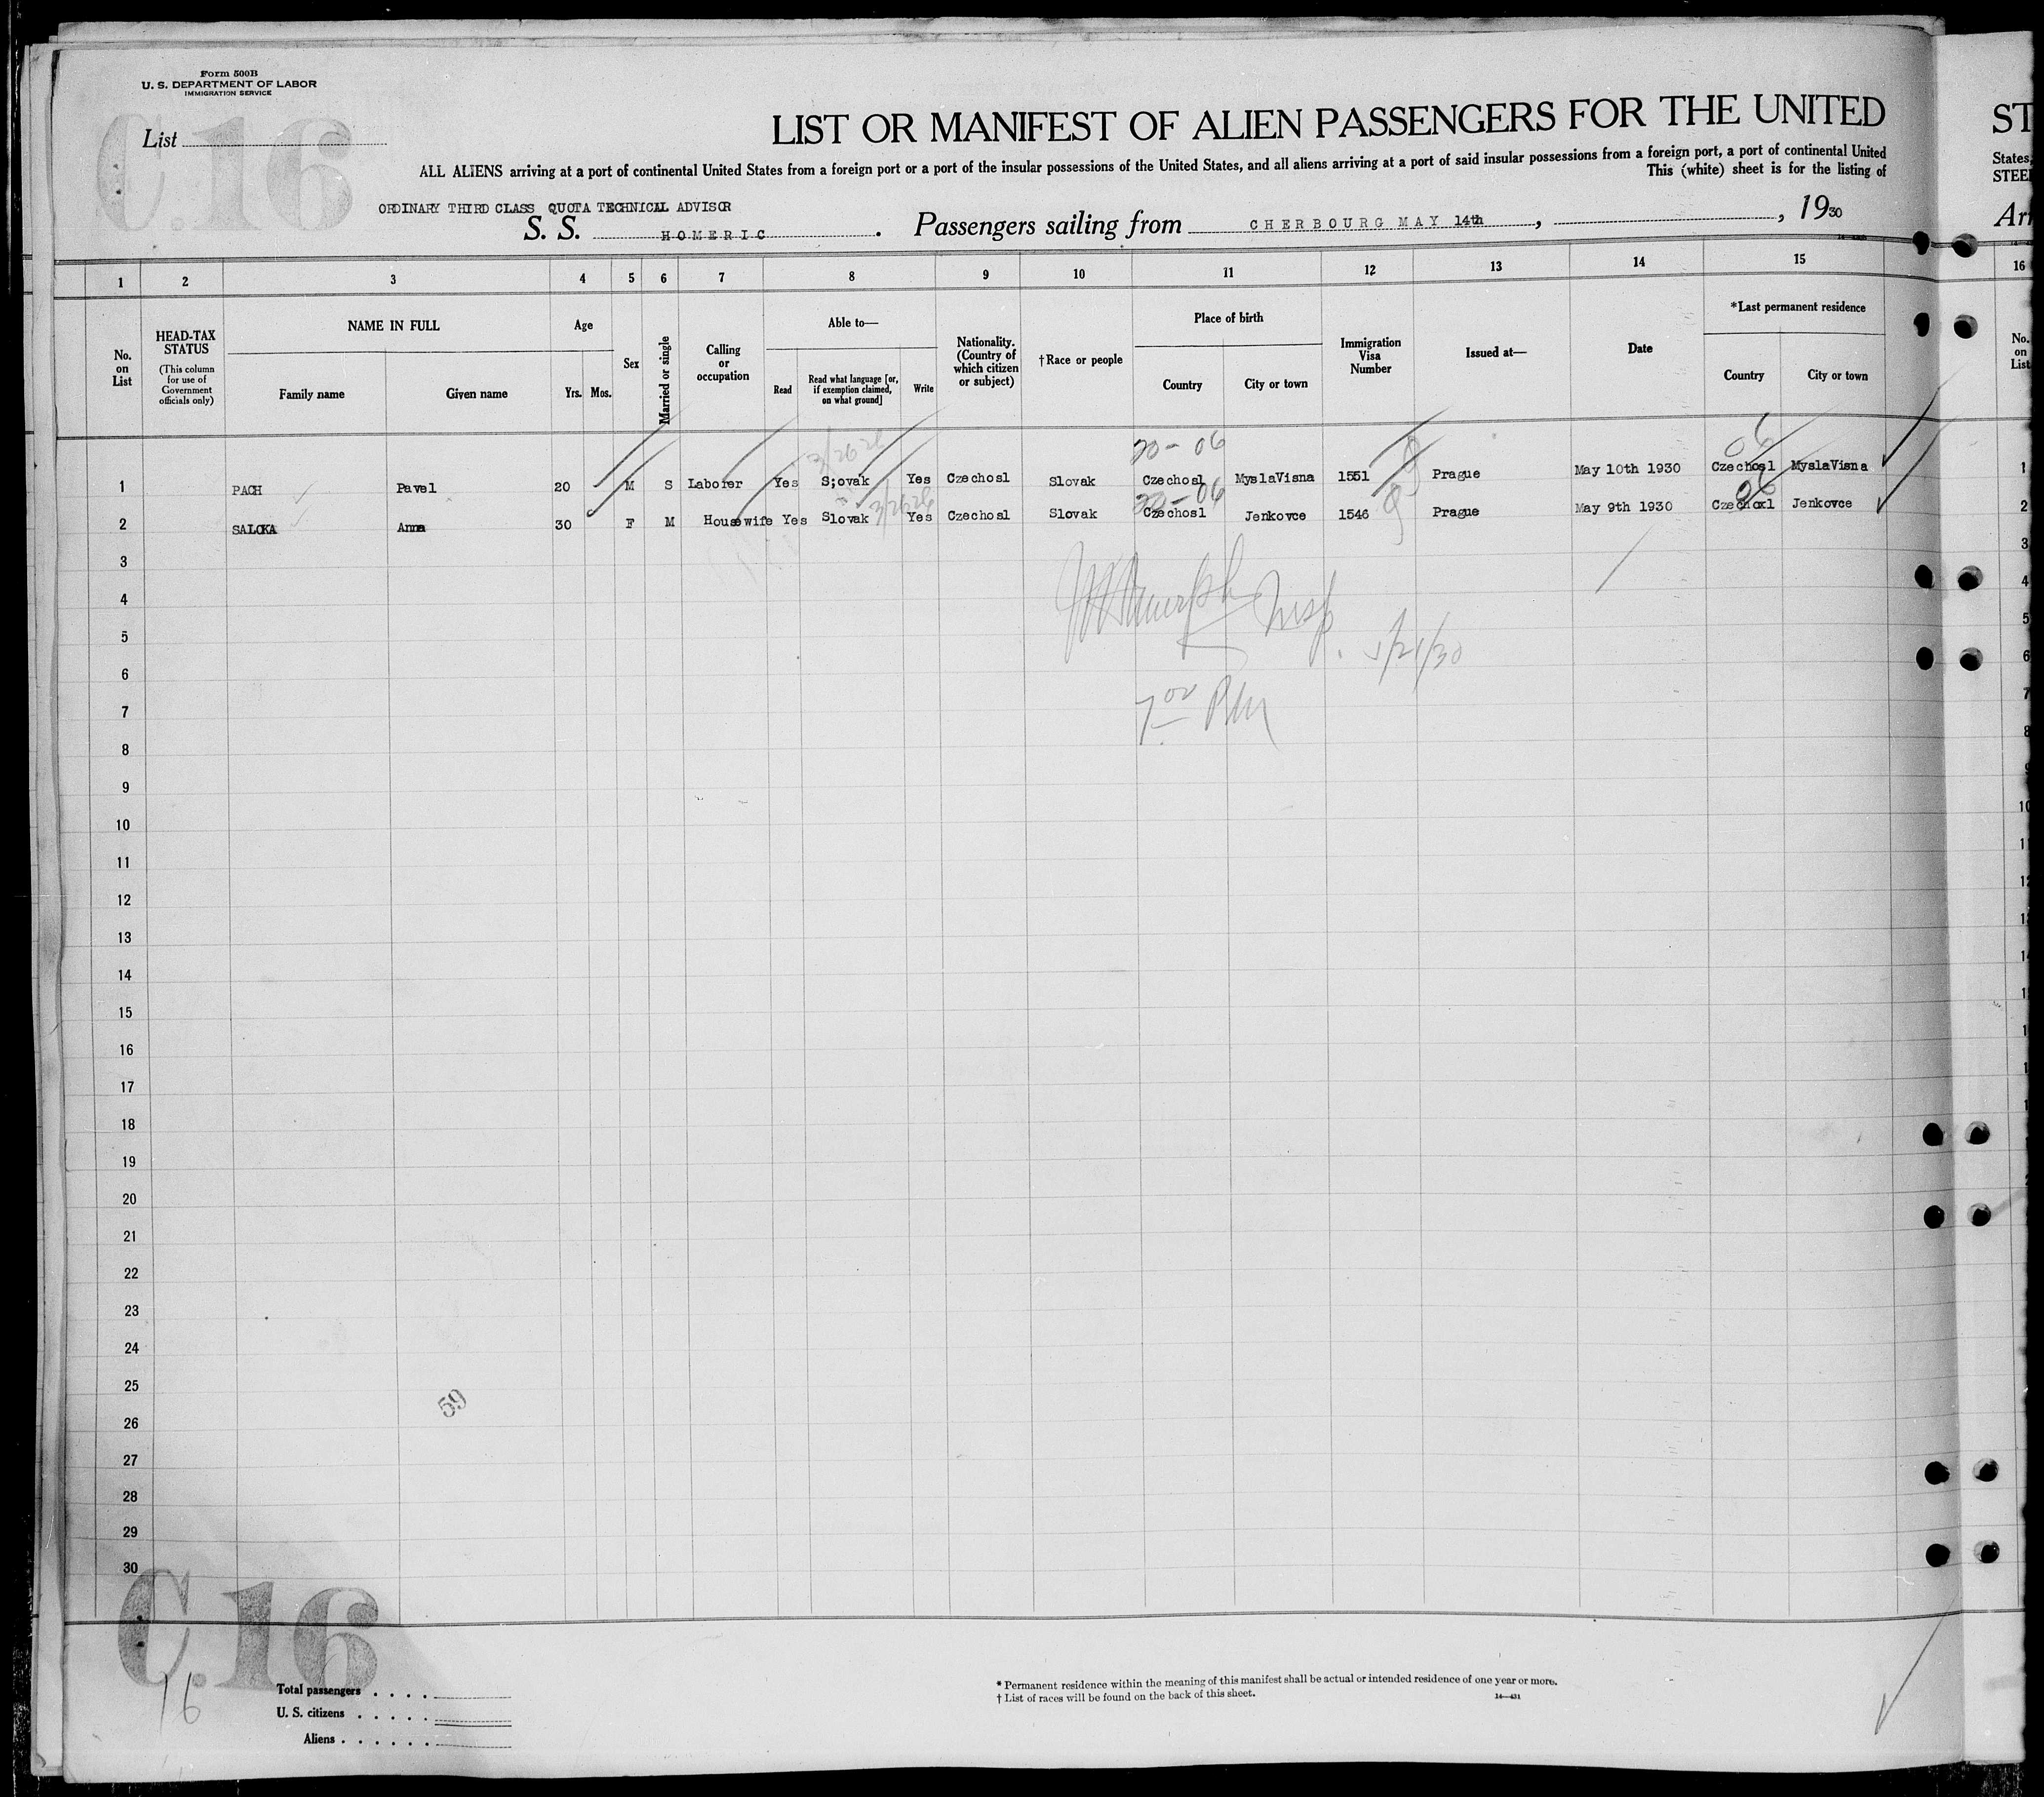 Form 500B
U. S. DEPARTMENT OF LABOR
IMMIGRATION SERVICE
C.16
List
LIST OR MANIFEST OF ALIEN PASSENGERS FOR THE UNITED
ST
ALL ALIENS arriving at a port of continental United States from a foreign port or a port of the insular possessions of the United States, and all aliens arriving at a port of said insular possessions from a foreign port, a port of continental United
States,
This (white) sheet is for the listing of
STEE
ORDINARY THIRD CLASS QUOTA TECHNICAL ADVISOR
S. S. HOMERIC. Passengers sailing from CHERBOURG MAY 14th, , 1930
Arr
1 2 3 4 5 6 7 8 9 10 11 12 13 14 15 16
No. on List
HEAD-TAX STATUS
(This column for use of Government officials only)
NAME IN FULL
Family name Given name
Age
Yrs. Mos.
Sex
Married or single
Calling or occupation
Able to—
Read
Read what language [or, if exemption claimed, on what ground]
Write
Nationality. (Country of which citizen or subject)
†Race or people
Place of birth
Country City or town
Immigration Visa Number
Issued at—
Date
*Last permanent residence
Country City or town
No. on List
3/26 26 20-06 06
1 PACH Pavel 20 M S Laborer Yes S;ovak Yes Czechosl Slovak Czechosl MyslaVisna 1551 Prague May 10th 1930 Czechosl MyslaVisna 1
20-06 06
2 SALOKA Anna 30 F M Housewife Yes Slovak Yes Czechosl Slovak Czechosl Jenkovce 1546 Prague May 9th 1930 Czechoxl Jenkovce 2
3 3
4 4
Insp.
5 5
5/21/30
6 6
7 7
7 00 PM
8 8
9
10 10
11
12
13
14
15
16
17
18
19
20
21
22
23
24
25
59
26
27
28
29
30
C.16
16
Total passengers . . . .
U. S. citizens . . . . .
Aliens . . . . . .
* Permanent residence within the meaning of this manifest shall be actual or intended residence of one year or more.
† List of races will be found on the back of this sheet.
14—431